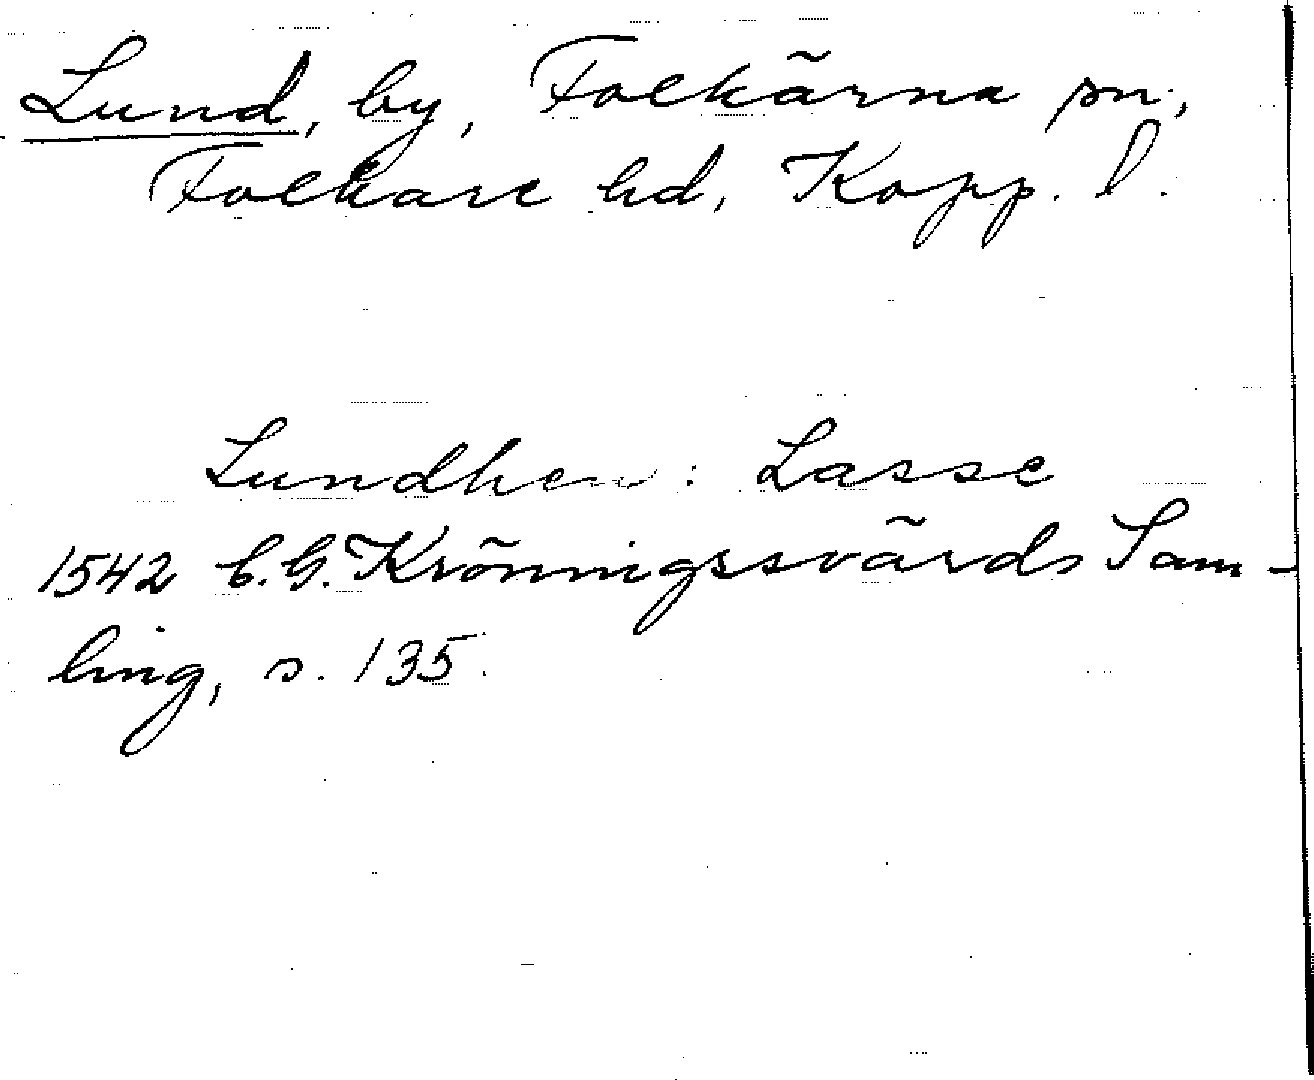 Lund, by, Folkärna sn,
Folkare hd, Kopp. l.
Lundhen: Lasse
1542 C.G. Krönningssvärds Sam-
ling, s. 135.